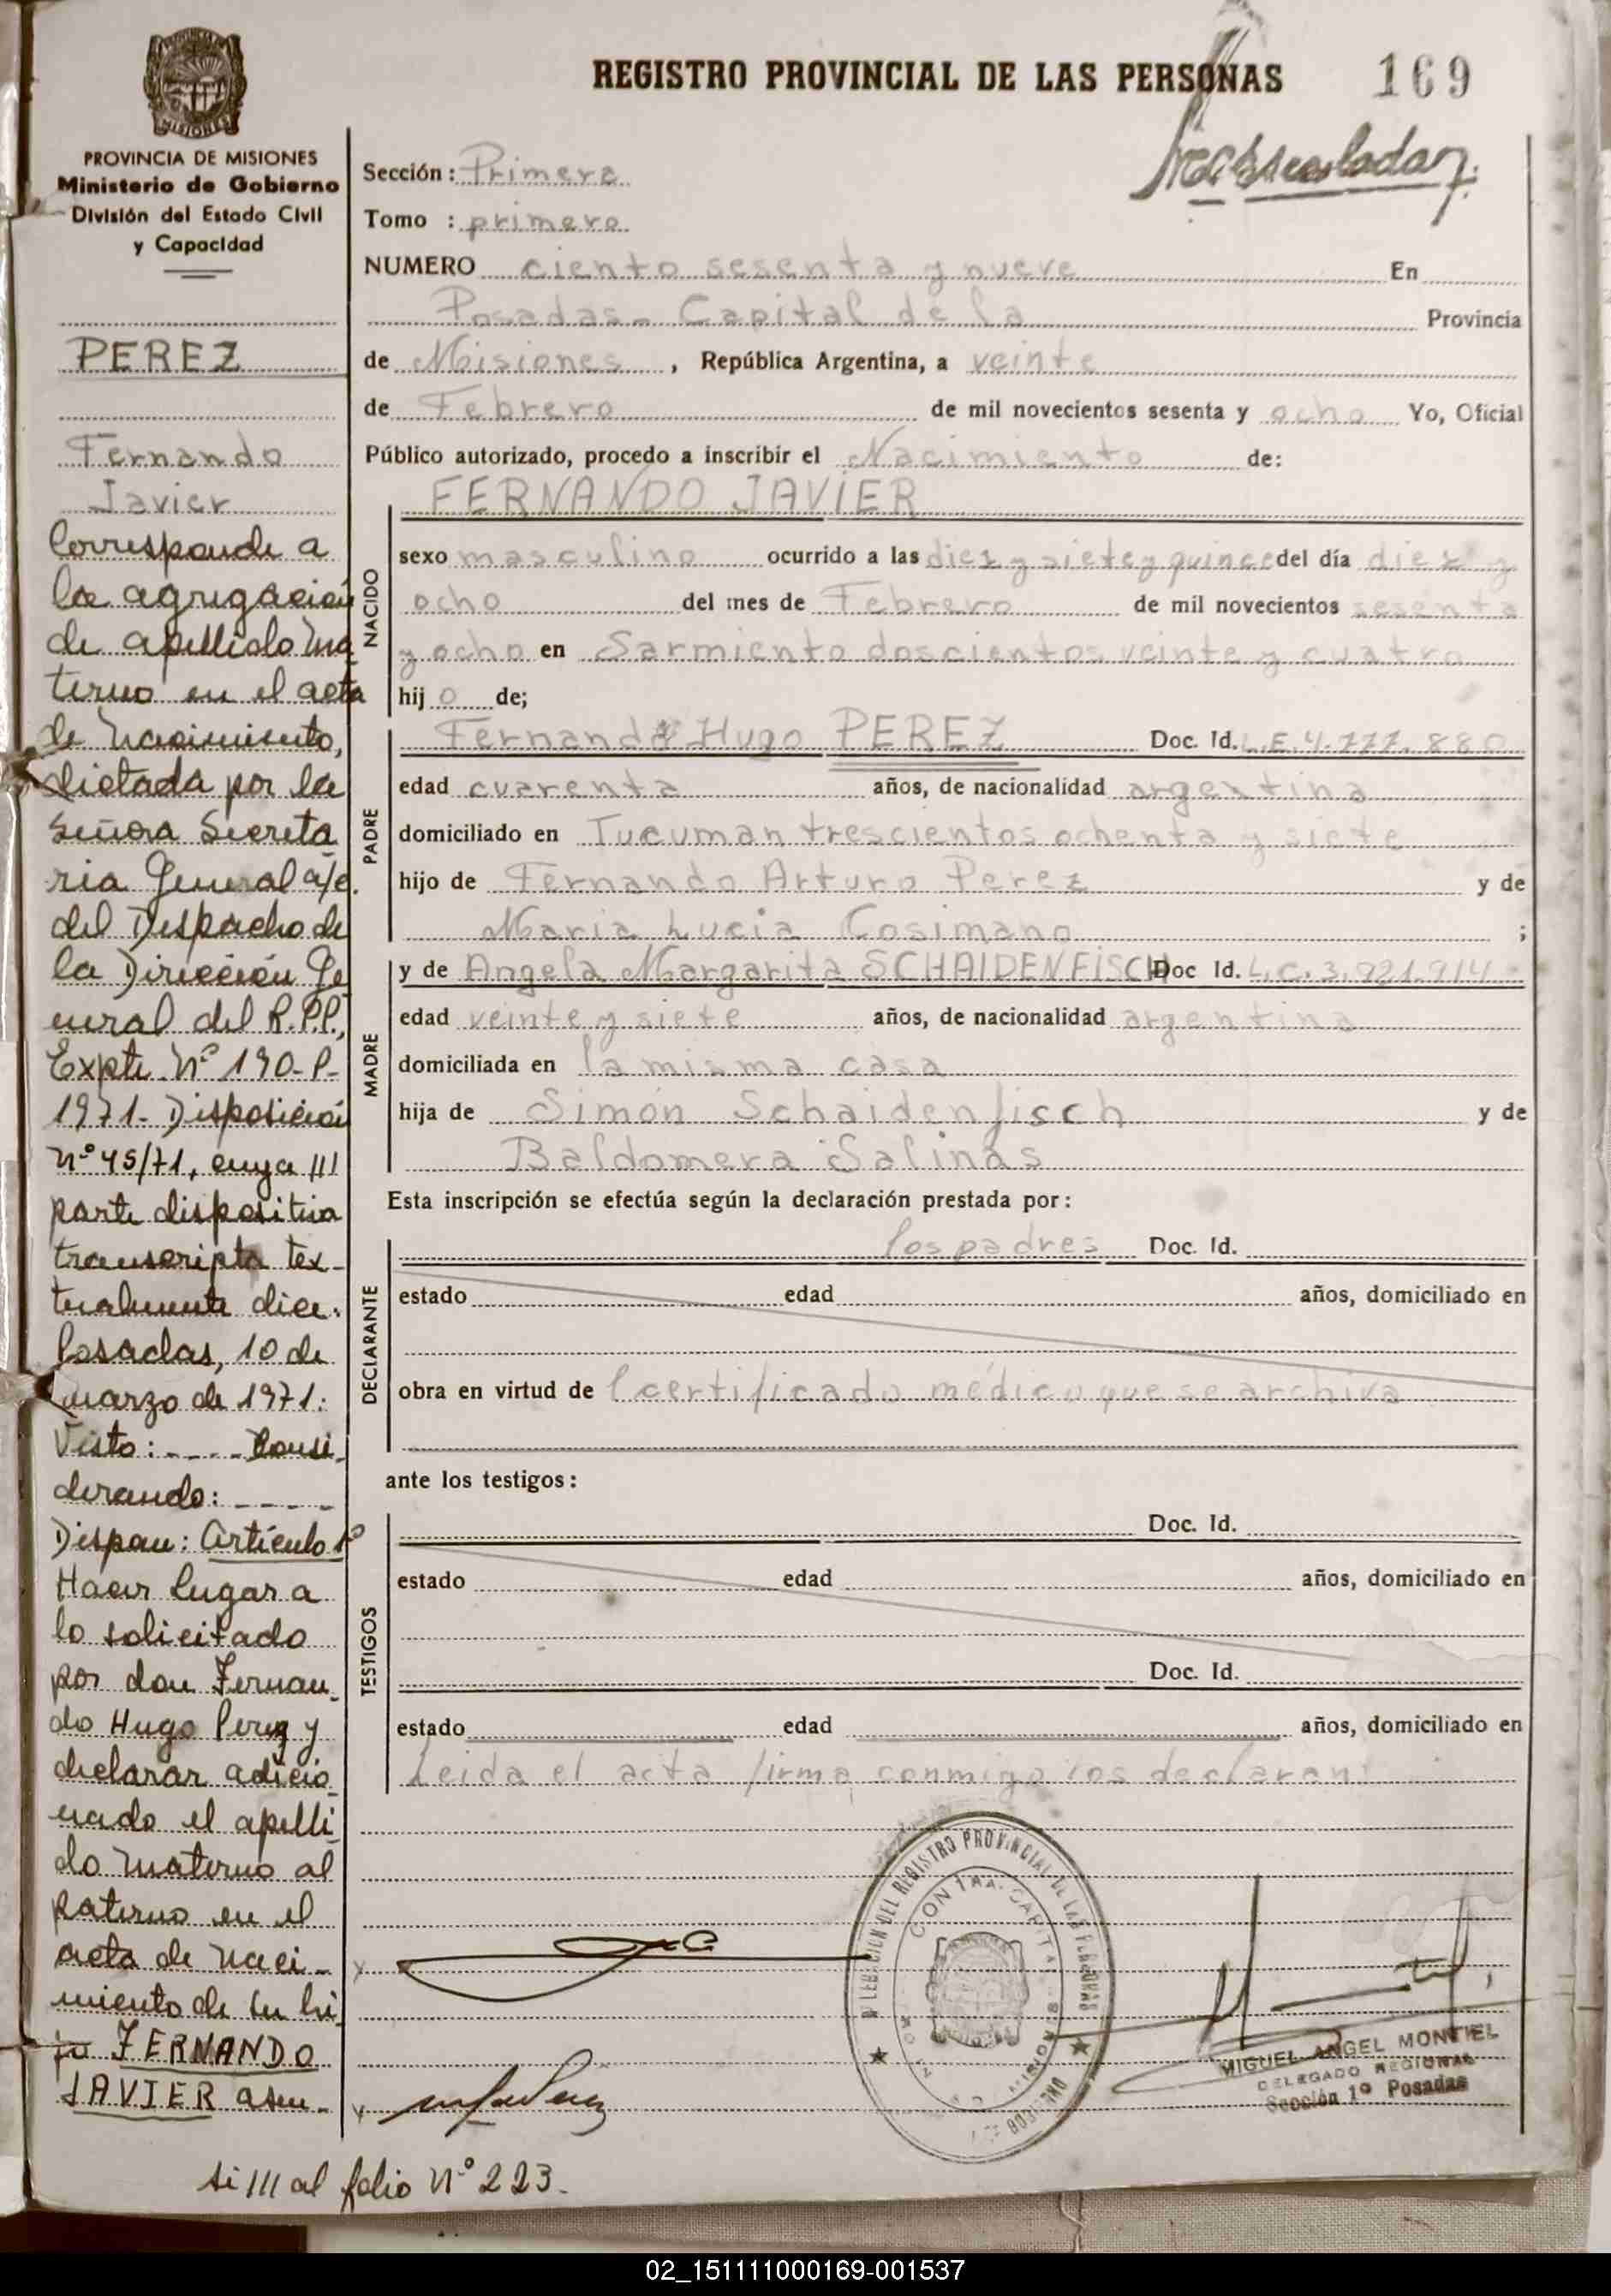 REGISTRO PROVINCIAL DE LAS PERSONAS 169
PROVINCIA DE MISIONES
Ministerio de Gobierno
División del Estado Civil
y Capacidad
PEREZ
Fernando
Javier
Corresponde a
la agregación
de apellido ma
terno en el acta
de Nacimiento,
dictada por la
Señora Secreta
ria General a/c.
del Despacho de
la Dirección Ge
neral del R.P.P.,
Expte. Nº 190-P-
1971- Disposición
Nº 45/71, cuya III
parte dispositiva
transcripta tex-
tualmente dice:
Posadas, 10 de
marzo de 1971:
Visto: ---- Consi
derando: ----
Dispon: Artículo 1º
Hacer lugar a
lo solicitado
por don Fernan-
do Hugo Perez y
declarar adicio
nado el apelli
do materno al
paterno en el
acta de naci-
miento de su hi
jo FERNANDO
JAVIER asen-
ti III al folio Nº 223.
Sección: Primera
Tomo : primero
NUMERO ciento sesenta y nueve En
Posadas- Capital de la Provincia
de Misiones, República Argentina, a veinte
de Febrero de mil novecientos sesenta y ocho Yo, Oficial
Público autorizado, procedo a inscribir el Nacimiento de:
FERNANDO JAVIER
NACIDO
sexo masculino ocurrido a las diez y siete y quince del día diez y
ocho del mes de Febrero de mil novecientos sesenta
y ocho en Sarmiento doscientos veinte y cuatro
hij o de;
PADRE
Fernando Hugo PEREZ Doc. Id. L.E.4.777.880
edad cuarenta años, de nacionalidad argentina
domiciliado en Tucuman trescientos ochenta y siete
hijo de Fernando Arturo Perez y de
Maria Lucia Cosimano ;
MADRE
y de Angela Margarita SCHAIDENFISCH Doc Id. L.C.3.921.914
edad veinte y siete años, de nacionalidad argentina
domiciliada en la misma casa
hija de Simón Schaidenfisch y de
Baldomera Salinas
Esta inscripción se efectúa según la declaración prestada por:
DECLARANTE
los padres Doc. Id.
estado edad años, domiciliado en
obra en virtud de l certificado médico que se archiva
ante los testigos:
TESTIGOS
Doc. Id.
estado edad años, domiciliado en
Doc. Id.
estado edad años, domiciliado en
Leida el acta firma conmigo los declaran
DEL REGISTRO PROVINCIAL DE LAS PERSONAS
MISIONES
MIGUEL ANGEL MONTIEL
DELEGADO REGIONAL
Sección 1º Posadas
02_151111000169-001537